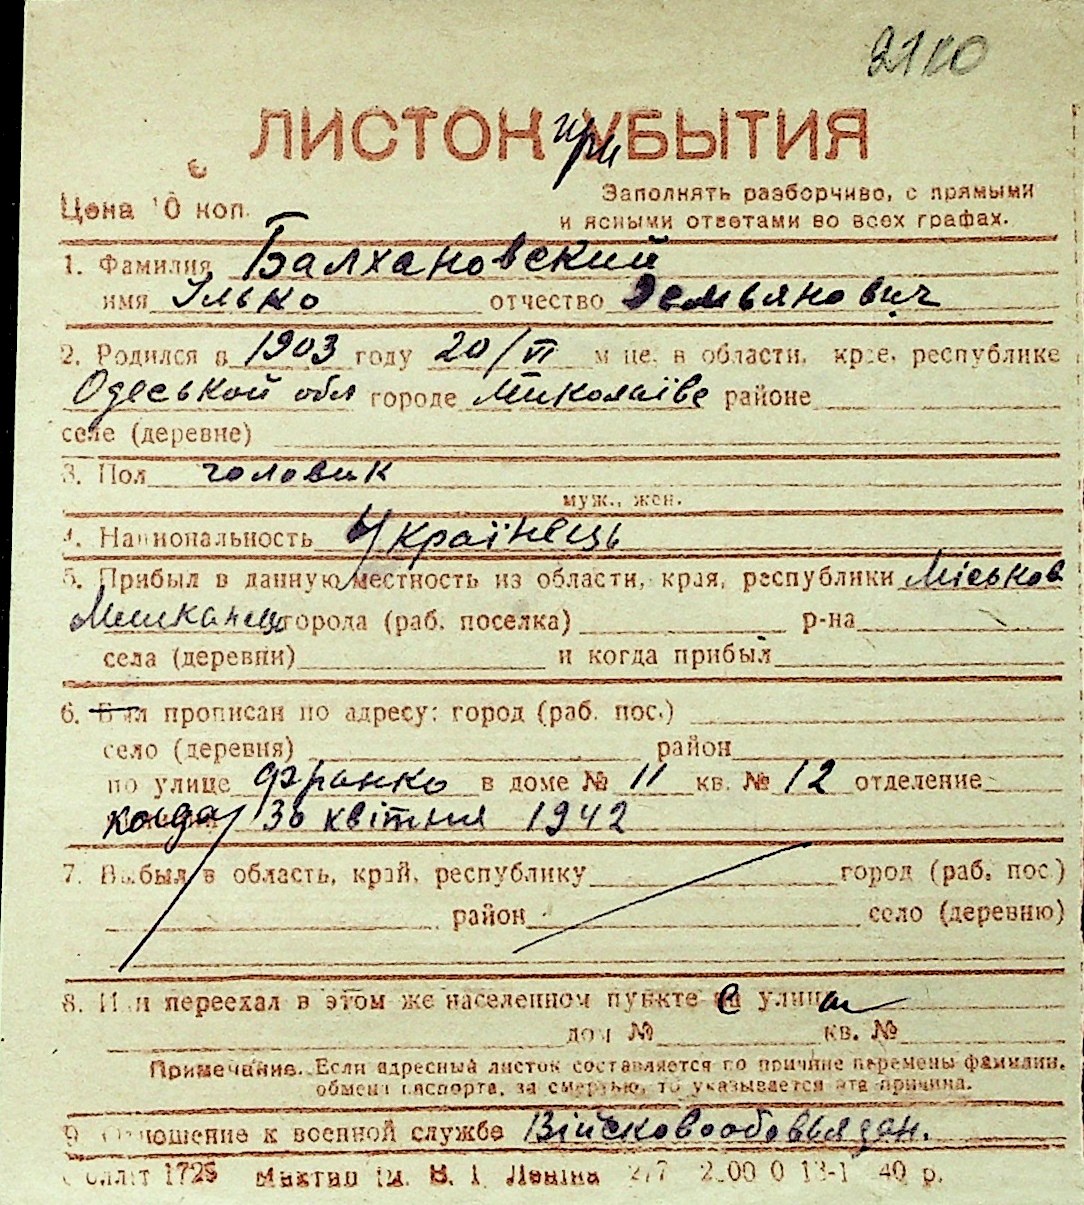 2100
ЛИСТОК при УБЫТИЯ
Цена 10 коп.
Заполнять разборчиво, с прямыми
и ясными ответами во всех графах.
1. Фамилия Балхановский
имя Ілько отчество Демьянович
2. Родился в 1903 году 20/VI м-це, в области, крае, республике
Одеській обл городе Миколаїве районе
селе (деревне)
3. Пол чоловик
муж., жен.
4. Национальность Українець
5. Прибыл в данную местность из области, края, республики Міськов
Мешканець города (раб. поселка) р-на
села (деревни) и когда прибыл
6. Был прописан по адресу: город (раб. пос.)
село (деревня) район
по улице Франко в доме № 11 кв. № 12 отделение
когда 30 квітня 1942
7. Выбыл в область, край, республику город (раб. пос.)
район село (деревню)
8. Или переехал в этом же населенном пункте с улицы
дом № кв. №
Примечание. Если адресный листок составляется по причине перемены фамилии,
обмена паспорта, за смертью, то указывается эта причина.
9. Отношение к военной службе Військовообовьязан.
1729 Ім. В. І. Леніна 277 40 р.